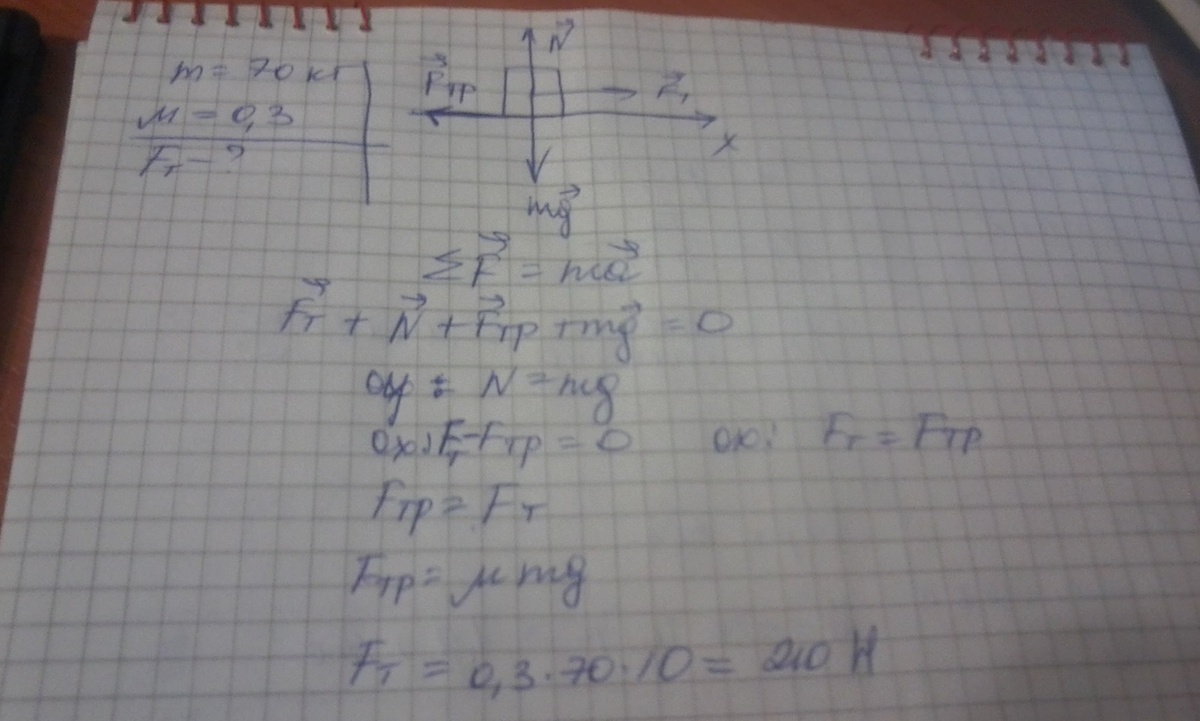 m = 70 кг
μ = 0,3
Fт - ?
N
Fтр
Fт
x
mg
ΣF = ma
Fт + N + Fтр + mg = 0
oy: N = mg
ox: Fт - Fтр = 0 ox: Fт = Fтр
Fтр = Fт
Fтр = μmg
Fт = 0,3·70·10 = 210 Н